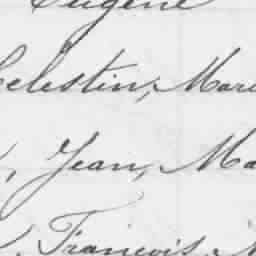 Eugène
Celestin, Mari
, Jean, Ma
, François,